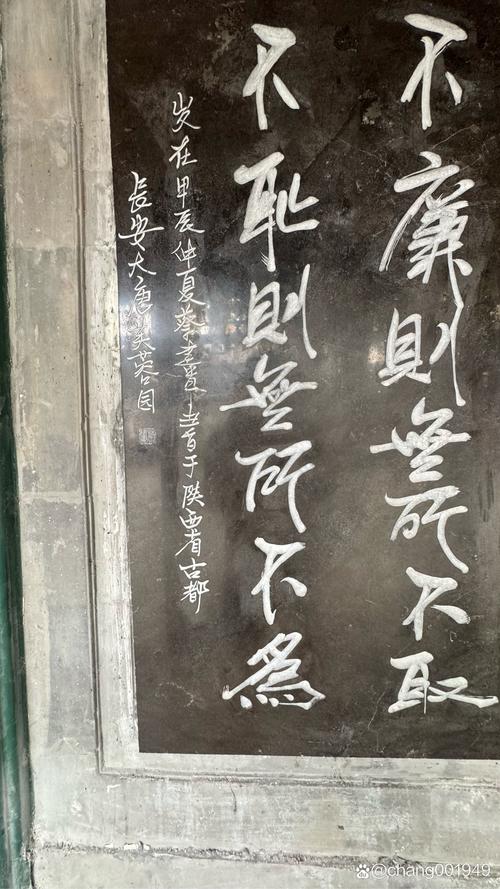 不廉則無所不取
不恥則無所不為
岁在甲辰仲夏蔡書于陕西省古都
长安大唐芙蓉园
@chang001949